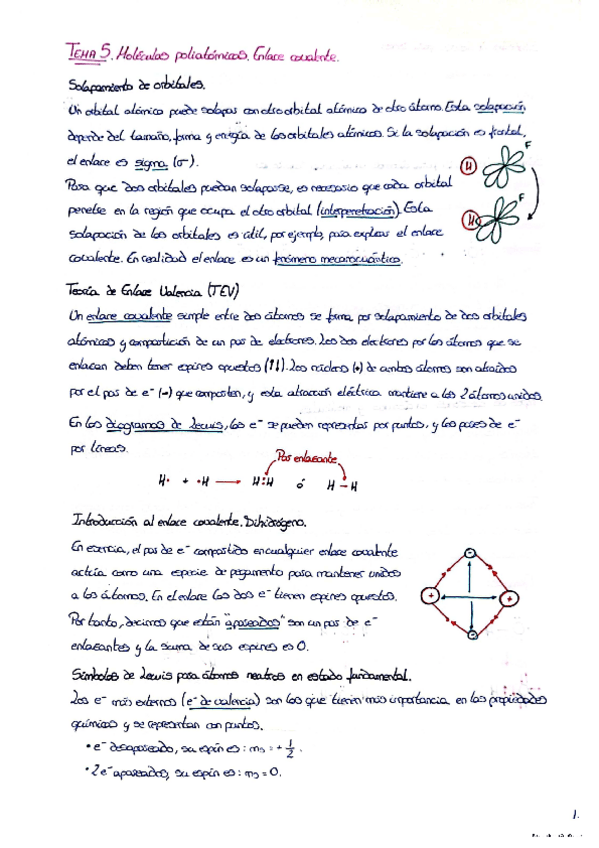 TEMA 5. Moléculas poliatómicas. Enlace covalente.
Solapamiento de orbitales.
Un orbital atómico puede solapar con otro orbital atómico de otro átomo. Esta solapación
depende del tamaño, forma y energía de los orbitales atómicos. Si la solapación es frontal,
el enlace es sigma (σ).
H F
Para que dos orbitales puedan solaparse, es necesario que cada orbital
penetre en la región que ocupa el otro orbital (interpenetración). Esta
H F
solapación de los orbitales es útil, por ejemplo, para explicar el enlace
covalente. En realidad el enlace es un fenómeno mecanocuántico.
Teoría de Enlace Valencia (TEV)
Un enlace covalente simple entre dos átomos se forma por solapamiento de dos orbitales
atómicos y compartición de un par de electrones. Los dos electrones por los átomos que se
enlazan deben tener espines opuestos (↑↓). Los núcleos (+) de ambos átomos son atraídos
por el par de e⁻ (-) que comparten, y esta atracción eléctrica mantiene a los 2 átomos unidos.
En los diagramas de Lewis, los e⁻ se pueden representar por puntos, y los pares de e⁻
por líneas.
Par enlazante
H· + ·H → H:H ó H-H
Introducción al enlace covalente. Dihidrógeno.
En esencia, el par de e⁻ compartido en cualquier enlace covalente
actúa como una especie de pegamento para mantener unidos
a los átomos. En el enlace los dos e⁻ tienen espines opuestos.
Por tanto, decimos que están "apareados" son un par de e⁻
enlazantes y la suma de sus espines es 0.
- + + -
Símbolos de Lewis para átomos neutros en estado fundamental.
Los e⁻ más externos (e⁻ de valencia) son los que tienen más importancia en las propiedades
químicas y se representan con puntos.
• e⁻ desapareado, su espín es: ms = + 1/2.
• 2 e⁻ apareados, su espín es: ms = 0.
1.